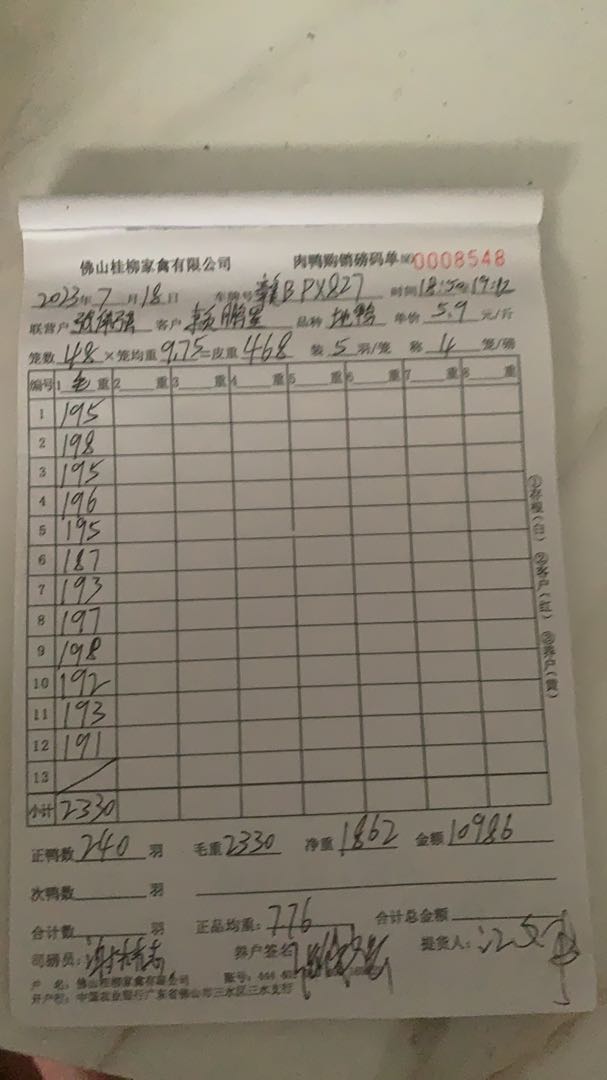 佛山桂柳家禽有限公司 肉鸭购销磅码单 NO 0008548
2023年7月18日 车牌号 BPX827 时间18:50 19:12
联营户 客户 品种 地鸭 单价 5.9 元/斤
笼数 48 ×笼均重 9.75 =皮重 468 装 5 羽/笼 称 4 笼/磅
编号 1 毛 重 2 重 3 重 4 重 5 重 6 重 7 重 8 重
1 195
2 198
3 195
4 196
5 195
6 187
7 193
8 197
9 198
10 192
11 193
12 191
13
小计 2330
①存根(白) ②客户(红) ③养户(黄)
正鸭数 240 羽 毛重 2330 净重 1862 金额 10986
次鸭数 羽
合计数 羽 正品均重: 776 合计总金额
司磅员: 养户签名 提货人:
户 名: 佛山桂柳家禽有限公司 账号:
开户行: 中国农业银行广东省佛山市三水区三水支行